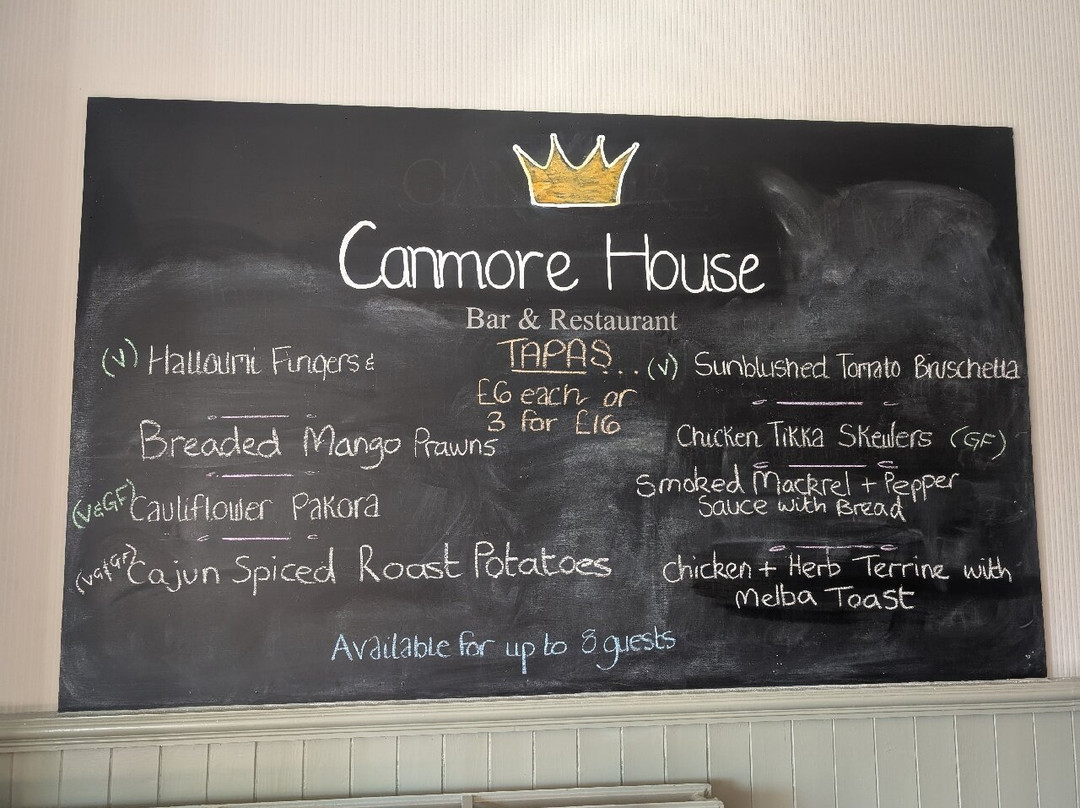 Canmore House
Bar & Restaurant
TAPAS...
£6 each or
3 for £16
(V) Halloumi Fingers &
Breaded Mango Prawns
(V&GF) Cauliflower Pakora
Cajun Spiced Roast Potatoes
(V) Sunblushed Tomato Bruschetta
Chicken Tikka Skewers (GF)
Smoked Mackrel + Pepper
Sauce with Bread
Chicken + Herb Terrine with
Melba Toast
Available for up to 8 guests